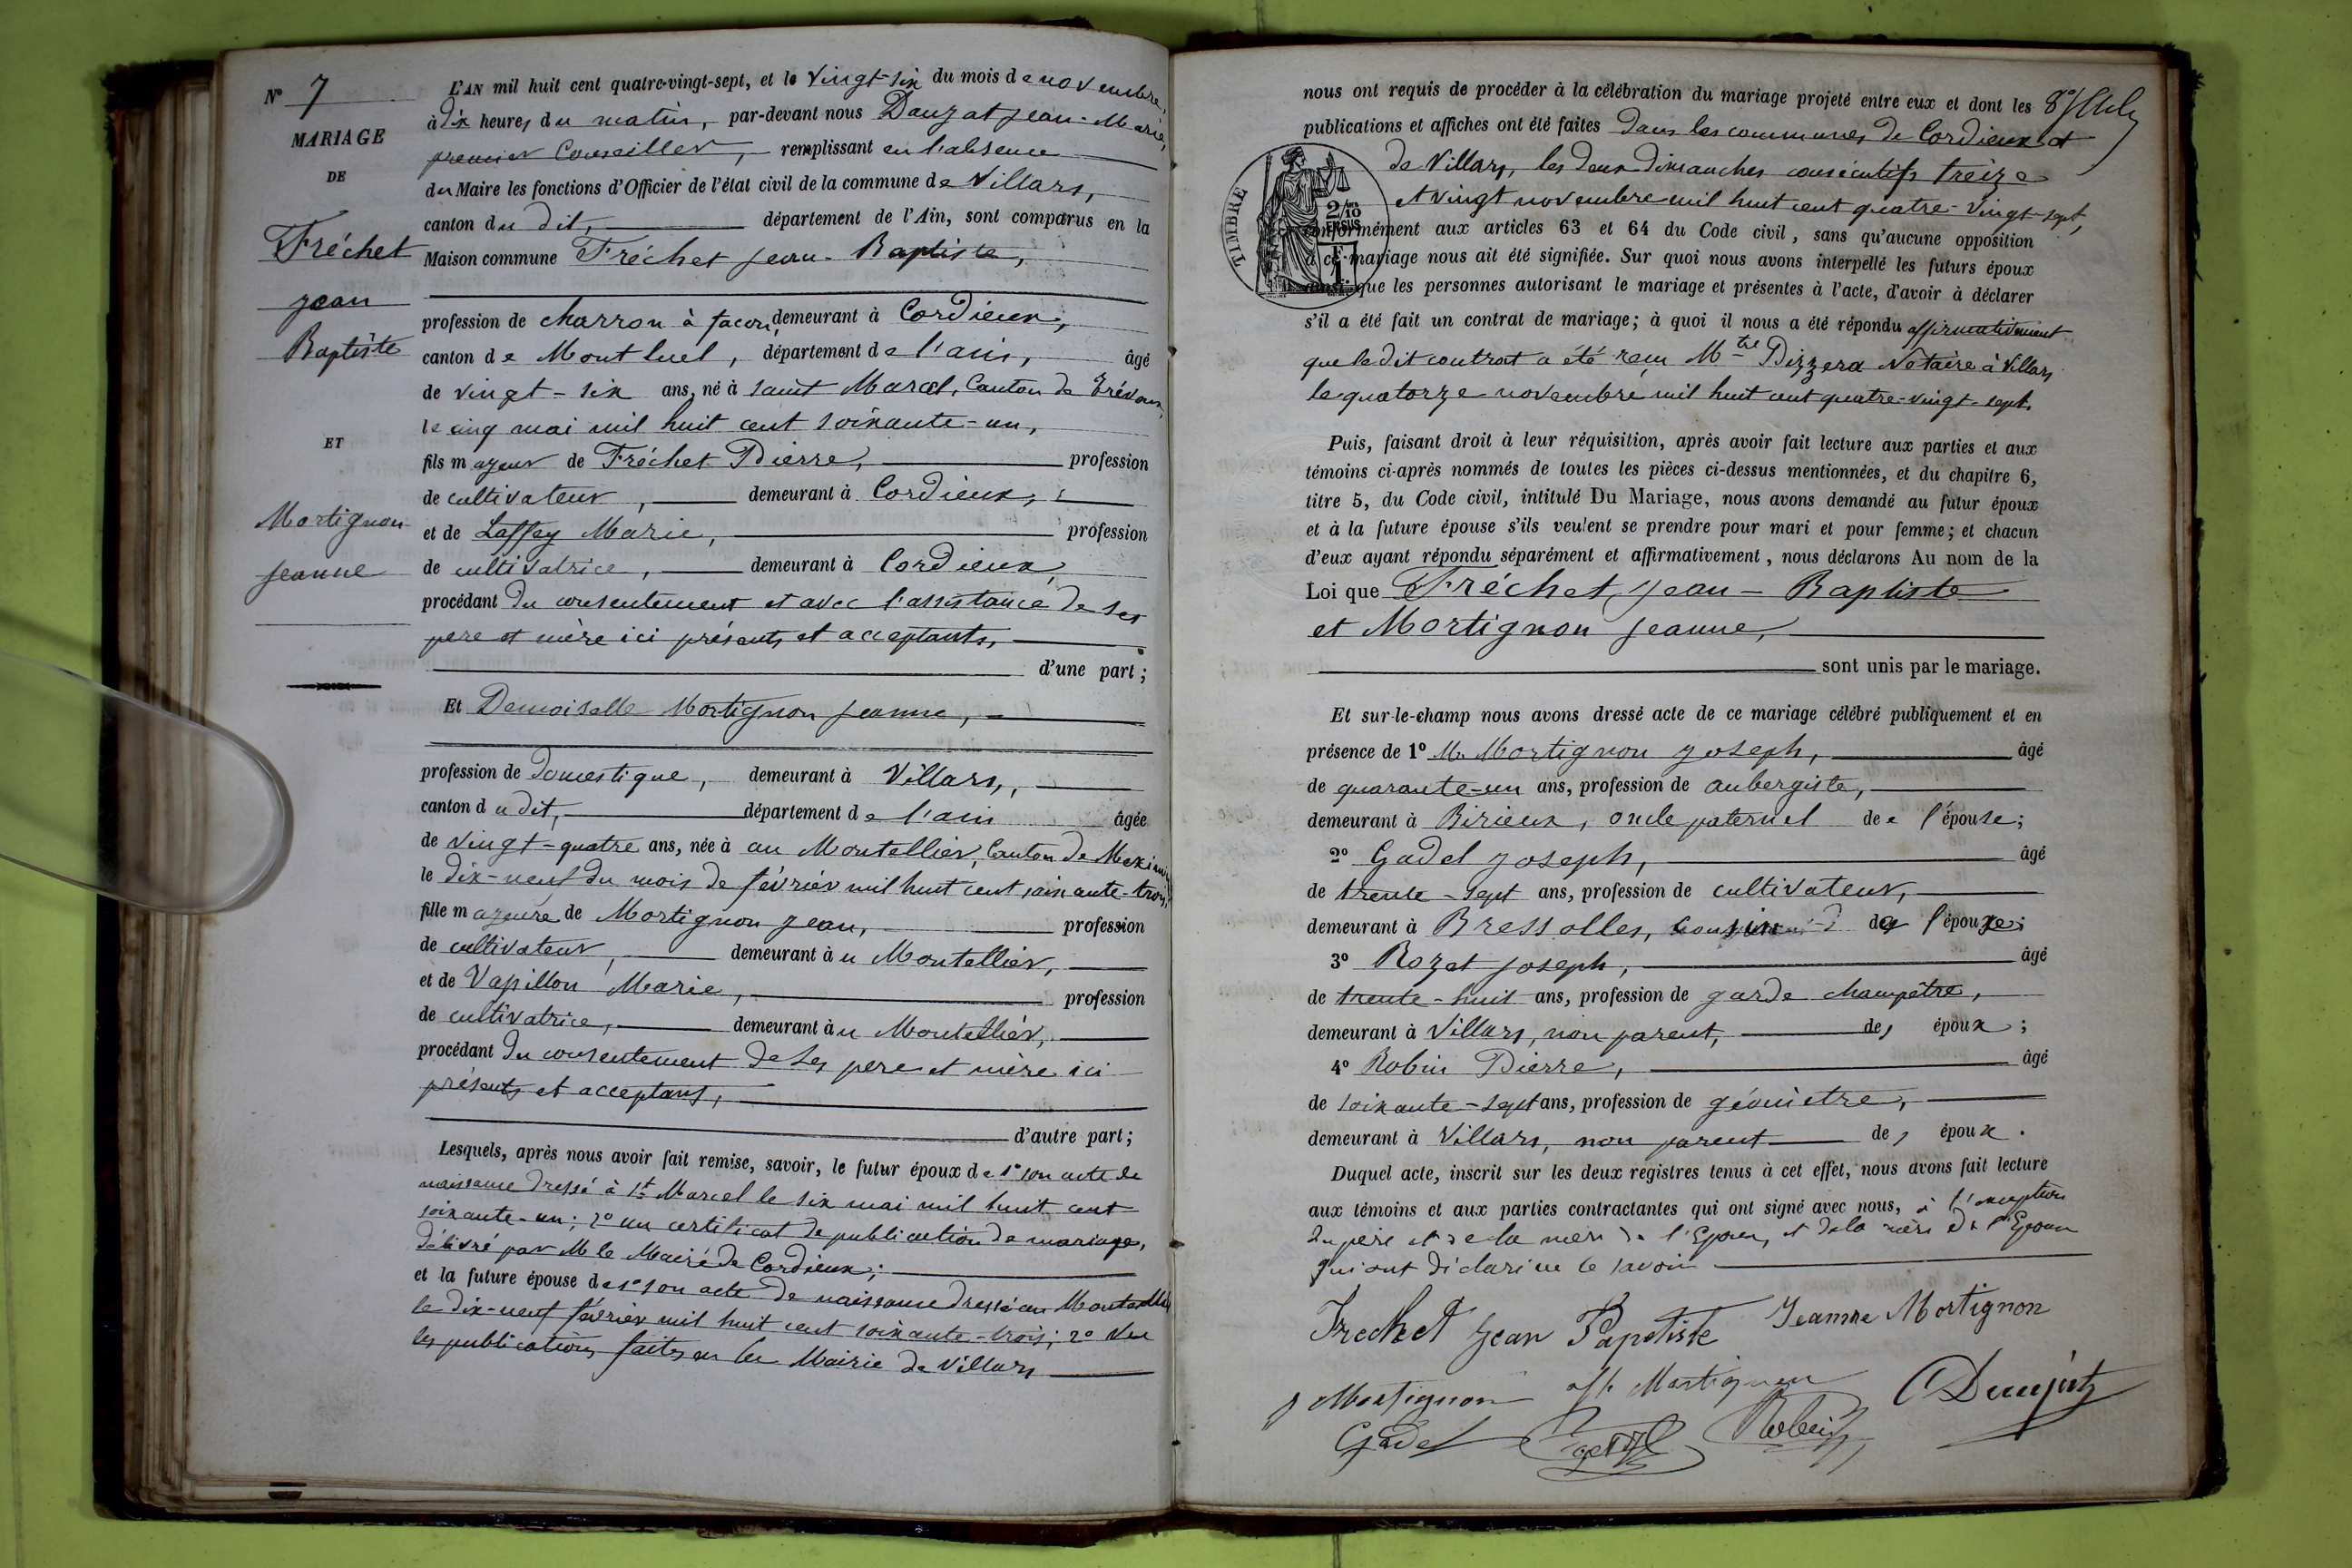 N° 7
MARIAGE
DE
Fréchet
Jean
Baptiste
ET
Mortignon
Jeanne
L'AN mil huit cent quatre-vingt-sept, et le vingt-six du mois de novembre,
à dix heures du matin, par-devant nous Dauzat Jean-Marie,
premier Conseiller, remplissant en l'absence
du Maire les fonctions d'Officier de l'état civil de la commune de Villars,
canton du dit, département de l'Ain, sont comparus en la
Maison commune Fréchet Jean-Baptiste,
profession de charron à façon, demeurant à Cordieux,
canton de Montluel, département de l'ain, âgé
de vingt-six ans, né à saint Marcel, Canton de Trévoux,
le cinq mai mil huit cent soixante-un,
fils majeur de Fréchet Pierre, profession
de cultivateur, demeurant à Cordieux,
et de Laffay Marie, profession
de cultivatrice, demeurant à Cordieux,
procédant du consentement et avec l'assistance de ses
père et mère ici présents et acceptants,
d'une part ;
Et Demoiselle Mortignon Jeanne,
profession de domestique, demeurant à Villars,
canton du dit, département de l'ain âgée
de vingt-quatre ans, née à au Montellier, Canton de Meximieux
le dix-neuf du mois de février mil huit cent soixante-trois,
fille majeure de Mortignon Jean, profession
de cultivateur, demeurant àu Montellier,
et de Vapillon Marie, profession
de cultivatrice, demeurant àu Montelliér,
procédant du consentement de ses père et mère ici
présents et acceptans,
d'autre part ;
Lesquels, après nous avoir fait remise, savoir, le futur époux de 1° son acte de
naissance dressé à St Marcel le six mai mil huit cent
soixante-un ; 2° un certificat de publication de mariage,
délivré par M le Maire de Cordieux ;
et la future épouse de 1° son acte de naissance dressé au Montellier
le dix-neuf février mil huit cent soixante-trois ; 2° Vu
les publications faites en la Mairie de Villars
nous ont requis de procéder à la célébration du mariage projeté entre eux et dont les
publications et affiches ont été faites dans les communes de Cordieux et
de Villars, les deux dimanches consécutifs treize
et vingt novembre mil huit cent quatre-vingt-sept,
TIMBRE
2/10
EN SUS
conformément aux articles 63 et 64 du Code civil, sans qu'aucune opposition
à ce mariage nous ait été signifiée. Sur quoi nous avons interpellé les futurs époux
ainsi que les personnes autorisant le mariage et présentes à l'acte, d'avoir à déclarer
s'il a été fait un contrat de mariage; à quoi il nous a été répondu affirmativement
que le dit contrat a été reçu Mtre Pizzera Notaire à Villars
le quatorze novembre mil huit cent quatre-vingt-sept.
Puis, faisant droit à leur réquisition, après avoir fait lecture aux parties et aux
témoins ci-après nommés de toutes les pièces ci-dessus mentionnées, et du chapitre 6,
titre 5, du Code civil, intitulé Du Mariage, nous avons demandé au futur époux
et à la future épouse s'ils veulent se prendre pour mari et pour femme; et chacun
d'eux ayant répondu séparément et affirmativement, nous déclarons Au nom de la
Loi que Fréchet Jean-Baptiste
et Mortignon Jeanne,
sont unis par le mariage.
Et sur-le-champ nous avons dressé acte de ce mariage célébré publiquement et en
présence de 1° M. Mortignon Joseph, âgé
de quarante-un ans, profession de aubergiste,
demeurant à Birieux, oncle paternel de l'épouse;
2° Gadel Joseph, âgé
de trente-sept ans, profession de cultivateur,
demeurant à Bressolles, cousin de l'épouxe;
3° Rozet Joseph, âgé
de trente-huit ans, profession de garde champêtre,
demeurant à Villars, non parent, des époux;
4° Robin Pierre, âgé
de soixante-sept ans, profession de géomètre,
demeurant à Villars, non parent des époux.
Duquel acte, inscrit sur les deux registres tenus à cet effet, nous avons fait lecture
aux témoins et aux parties contractantes qui ont signé avec nous, à l'exception
du père et de la mère de l'Epoux, et de la mère de l'Epouse
qui ont déclaré ne le savoir
Frechet Jean Papetiste Jeanne Mortignon
J Mortignon Mortignon
Gadel Robin